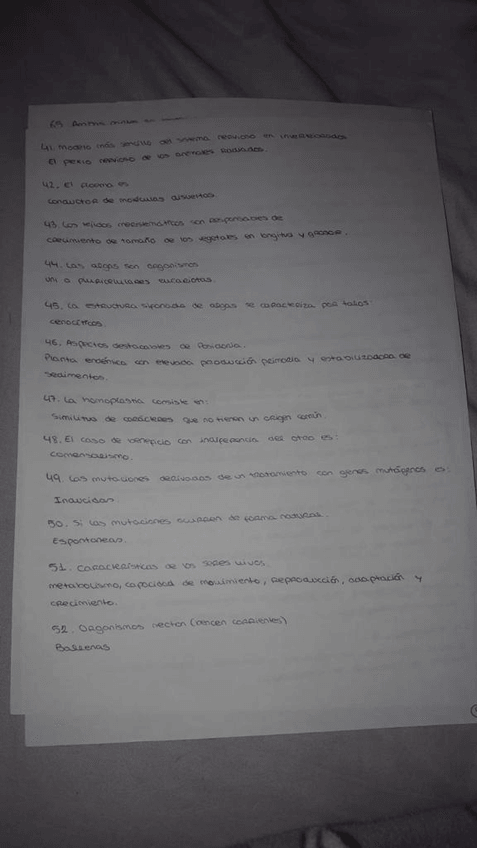 41. Modelo más sencillo del sistema nervioso en invertebrados
El plexo nervioso de los animales Radiados.
42. El Plasma es
conductor de moléculas disueltas
43. Los tejidos meristemáticos son Responsables de
crecimiento de tamaño de los vegetales en longitud y grosor.
44. Las algas son organismos
uni o pluricelulares eucariotas.
45. La estructura sifonada de algas se caracteriza por talos:
cenocíticos.
46. Aspectos destacables de Posidonia.
Planta endémica con elevada producción primaria y estabilizadora de
sedimentos.
47. La homoplastia consiste en:
Similitud de carácteres que no tienen un origen común
48. El caso de beneficio con indiferencia del otro es:
comensalismo.
49. Las mutaciones derivadas de un tratamiento con agentes mutágenos es:
Inducidas
50. Si las mutaciones ocurren de forma natural.
Espontaneas.
51. Características de los seres vivos.
metabolismo, capacidad de movimiento, Reproducción, adaptación y
crecimiento.
52. Organismos necton (vencen corrientes)
Ballenas